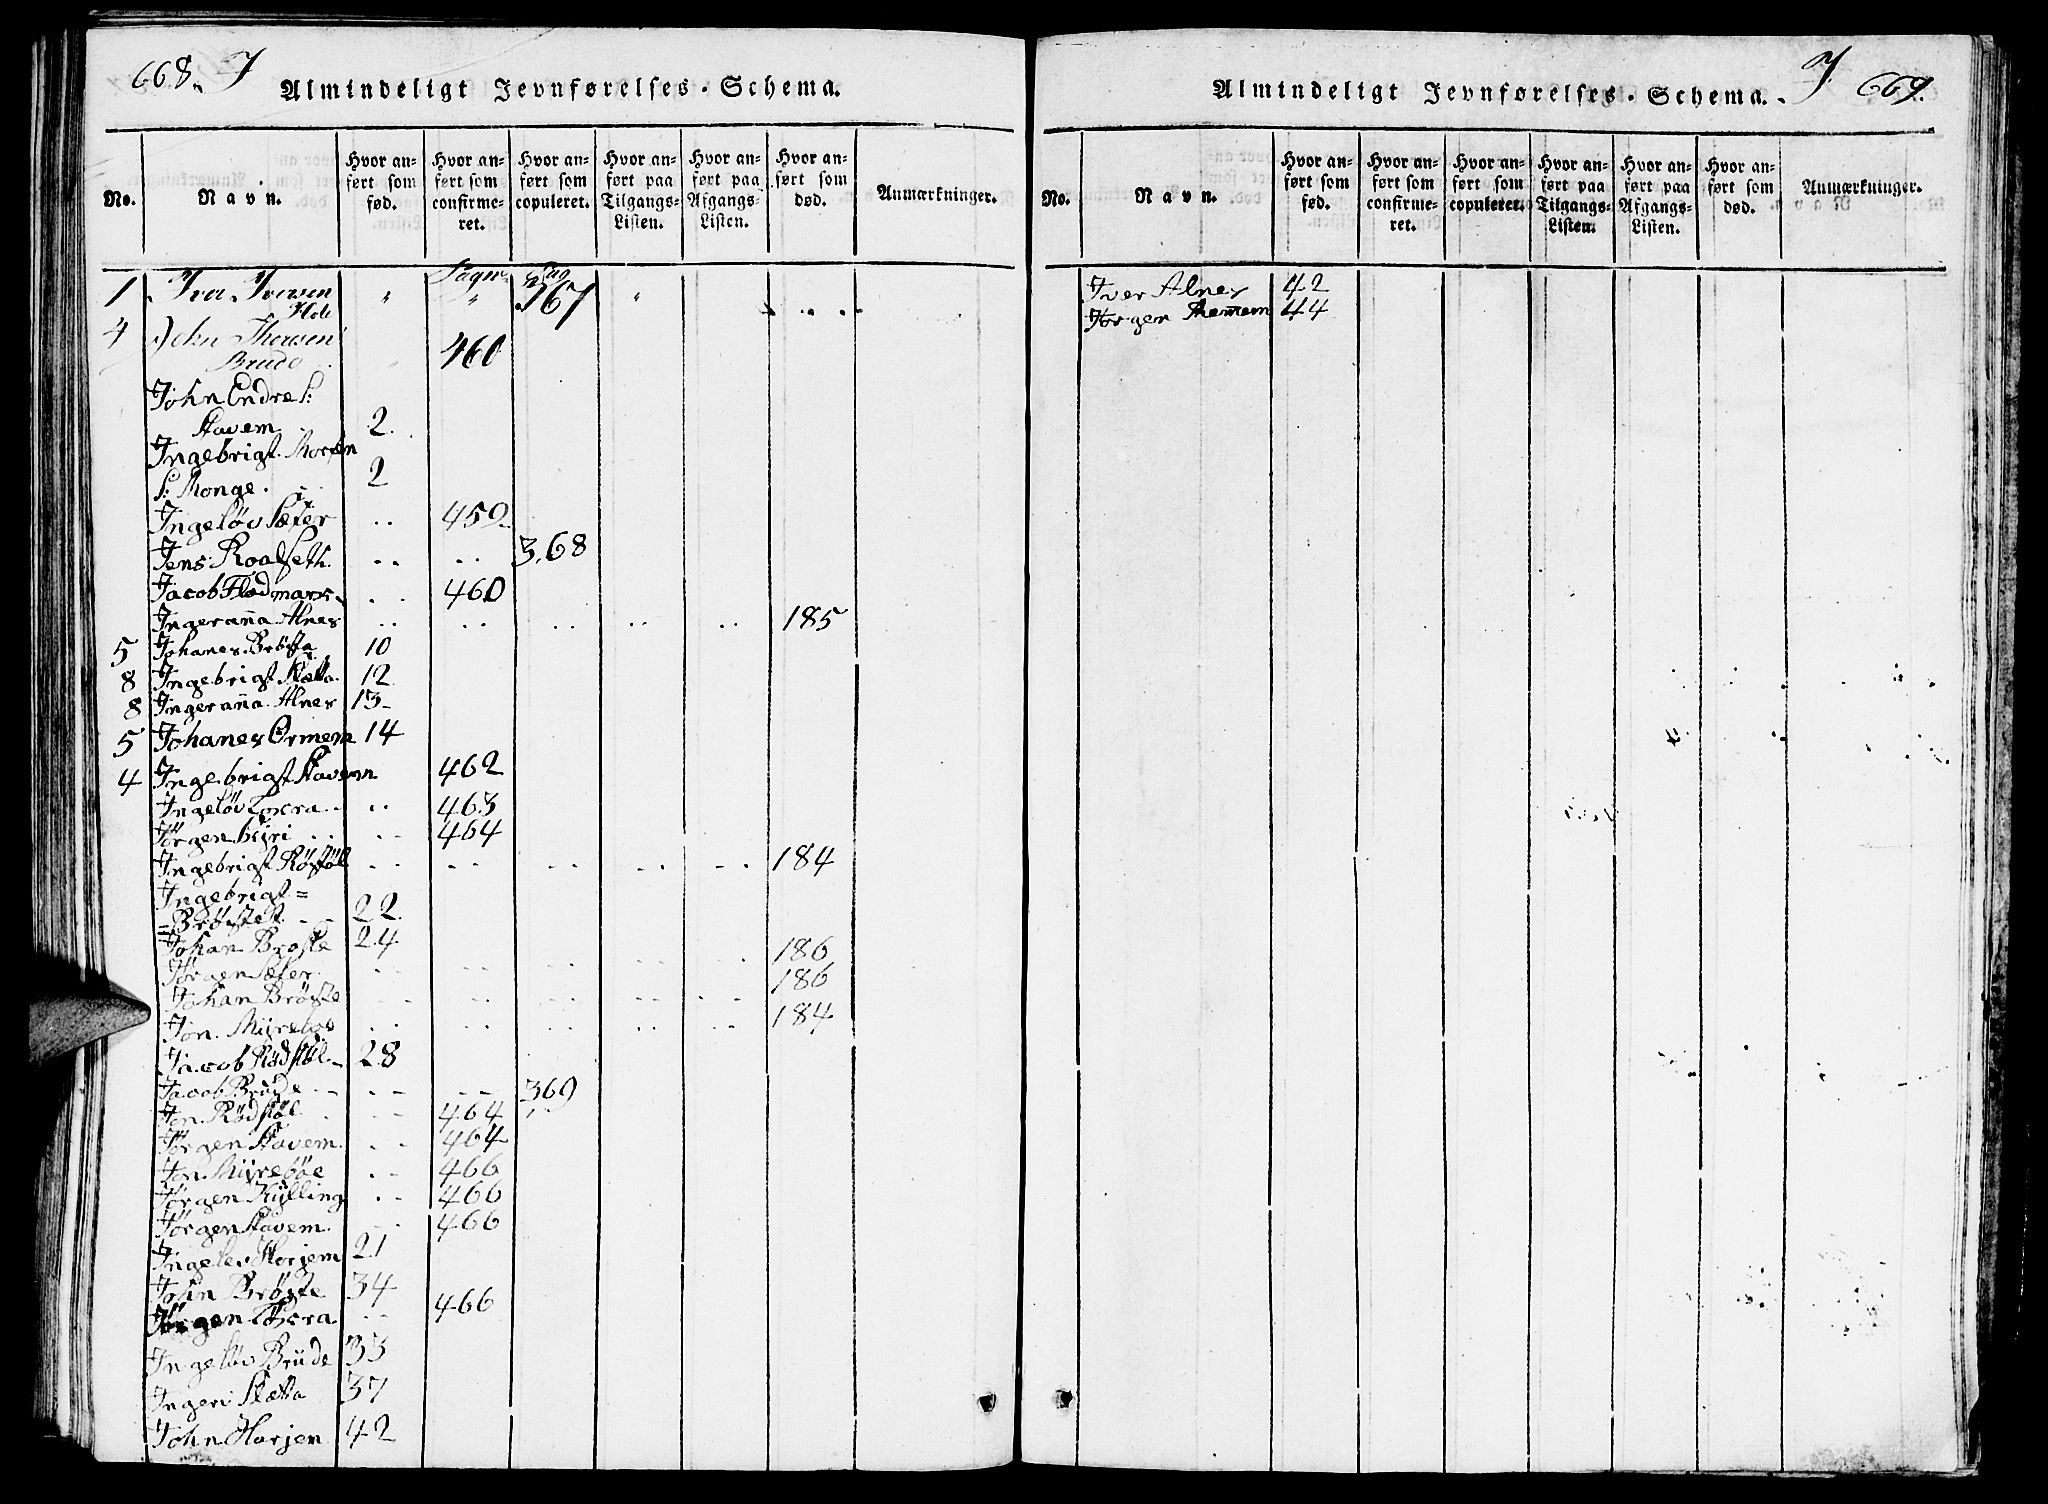 668. J
Almindeligt Jevnførelses-Schema.
No.
Navn.
Hvor anført som fød.
Hvor anført som confirmeret.
Hvor anført som copuleret.
Hvor anført paa Tilgangs-Listen.
Hvor anført paa Afgangs-Listen.
Hvor anført som død.
Anmærkninger.
Pagin Pag
1 Iver Iversen " " 367 "
4 John Thoresen
Brude 460
John Endre S:
Stavem 2.
Ingebrigt Morten
S: Monge. 2
Ingeløv Sæter .. 459
Jens Roalseth. .. .. 368
Jacob Fladmark .. 460
Ingeranna Alnes .. .. .. .. .. 185
5 Johanes Brøste 10
8 Ingebrigt Slætta 12
8 Ingeranna Alnes 13
5 Johanes Ormem 14
4 Ingebrigt Stavem 462
Ingeløv Løkra .. 463
Jørgen Kyri .. 464
Ingebrigt Rødstøl .. .. .. .. .. 184
Ingebrigt =
= Brøstet 22.
Johan Brøste 24
Jørgen Sæter .. .. .. .. .. 186
Johan Brøste .. .. .. .. .. 186
Jon Myrebøe .. .. .. .. .. 184
Jacob Rødstøl 28
Jacob Brude .. .. 369
Jon Rødstøl .. 464
Jørgen Stavem .. 464
Jon Myrebøe .. 466
Jørgen Kylling .. 466
Jørgen Stavem .. 466
Ingelev Horjem 21
John Brøste 34
Jørgen Løkra .. 466
Ingeløv Brude 33
Ingeri Slætta 37
John Harjem 42
Almindeligt Jevnførelses-Schema. J 669.
No.
Navn.
Hvor anført som fød.
Hvor anført som confirmeret.
Hvor anført som copuleret.
Hvor anført paa Tilgangs-Listen.
Hvor anført paa Afgangs-Listen.
Hvor anført som død.
Anmærkninger.
Iver Alnes 42
Jørgen 44